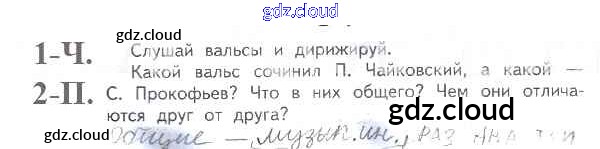 gdz.cloud
gdz.cloud
1-Ч. Слушай вальсы и дирижируй.
Какой вальс сочинил П. Чайковский, а какой —
gdz.cloud
2-П. С. Прокофьев? Что в них общего? Чем они отлича-
ются друг от друга?
gdz.cloud
gdz.cloud
Общие — музык. ин., раз два три